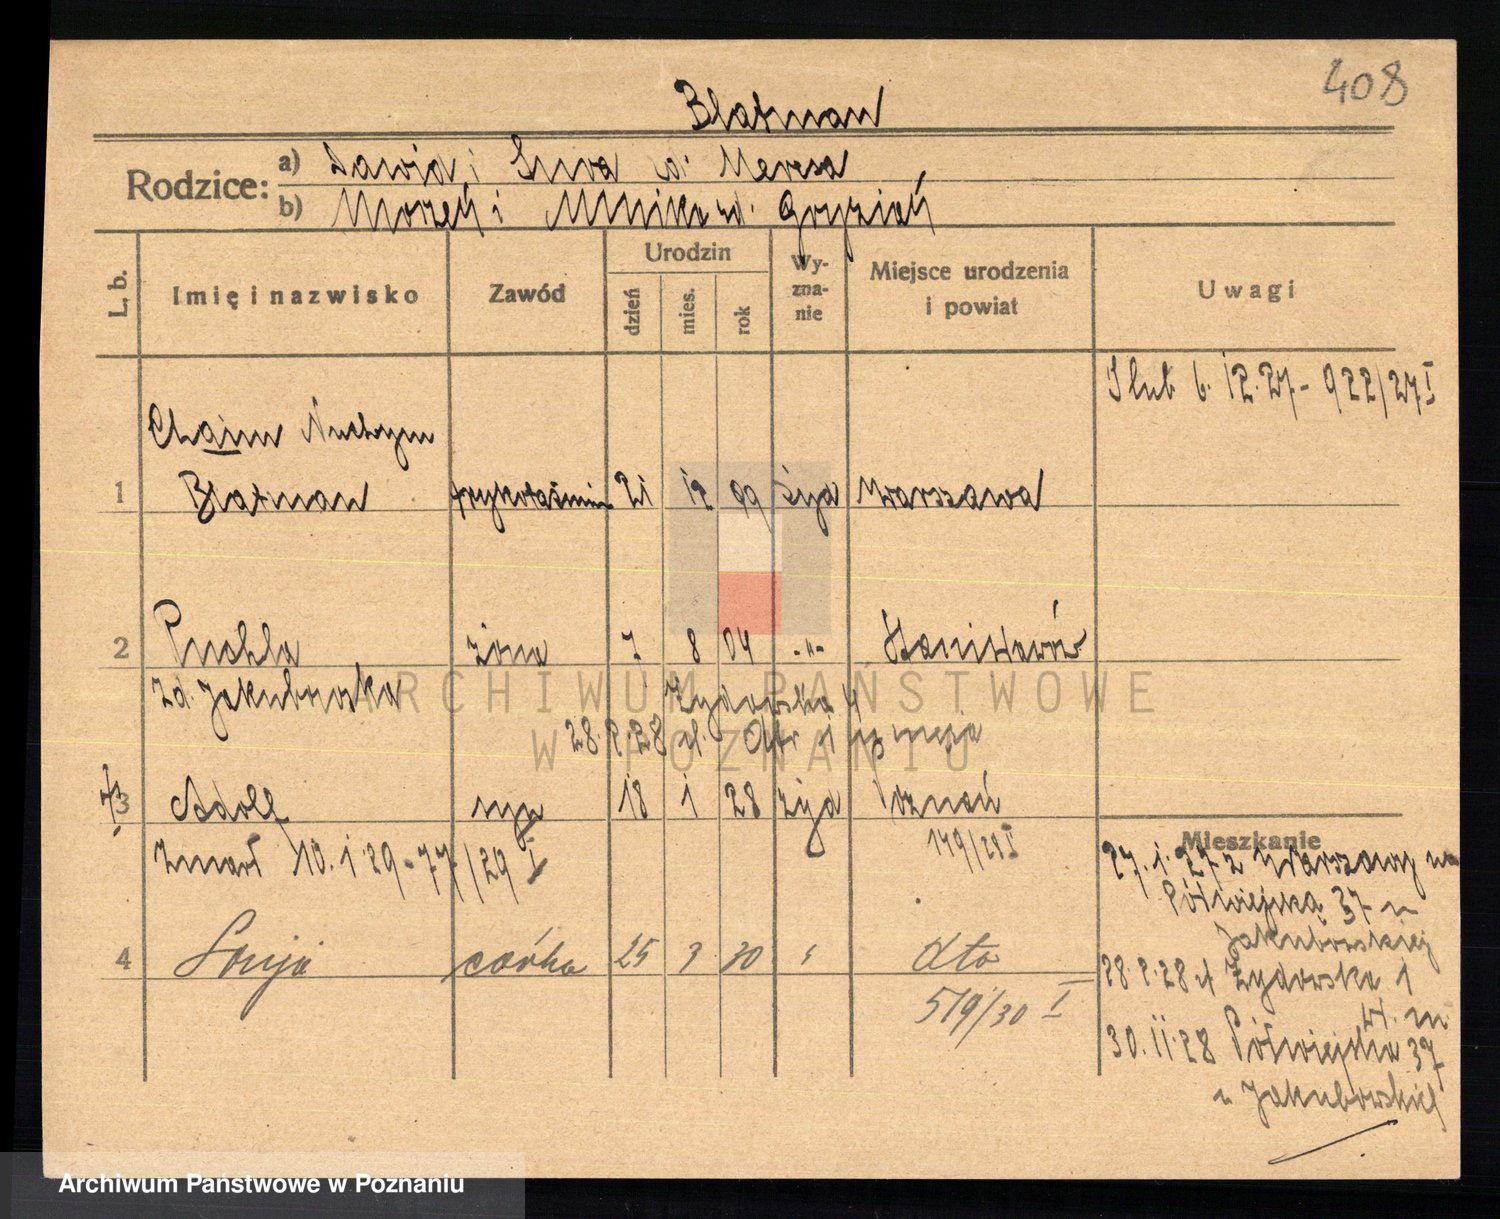 408
Blatman
Rodzice: a) Dawid i Sura d. Meresa
b) Mozeń i Minika zd. Gryziań
L. b. Imię i nazwisko Zawód Urodzin dzień mies. rok Wy-zna-nie Miejsce urodzenia i powiat Uwagi
Ślub 6. 12. 27 - 922/27 I
Chaim Nuchym
1 Blatman 21 12 99 żyd Warszawa
2 Ruchla żona 7 8 04 -"- Stanisławów
zd. Jakubowska Żydowska 4
28. 2. 28 i 13 maja
3 Adolf syn 18 1 28 żyd Poznań
Zmarł 10. 1 29 - 77/29 I 149/28 I
Mieszkanie
27. 1. 27 z Warszawy na
Półwiejską 37 u
Jakubowskiej
4 Sonja córka 25 3 30 dto
28. 2. 28 Żydowska 1
519/30 I
30. 11. 28 Półwiejska 37
u Jakubowskiej
ARCHIWUM PAŃSTWOWE
W POZNANIU
Archiwum Państwowe w Poznaniu